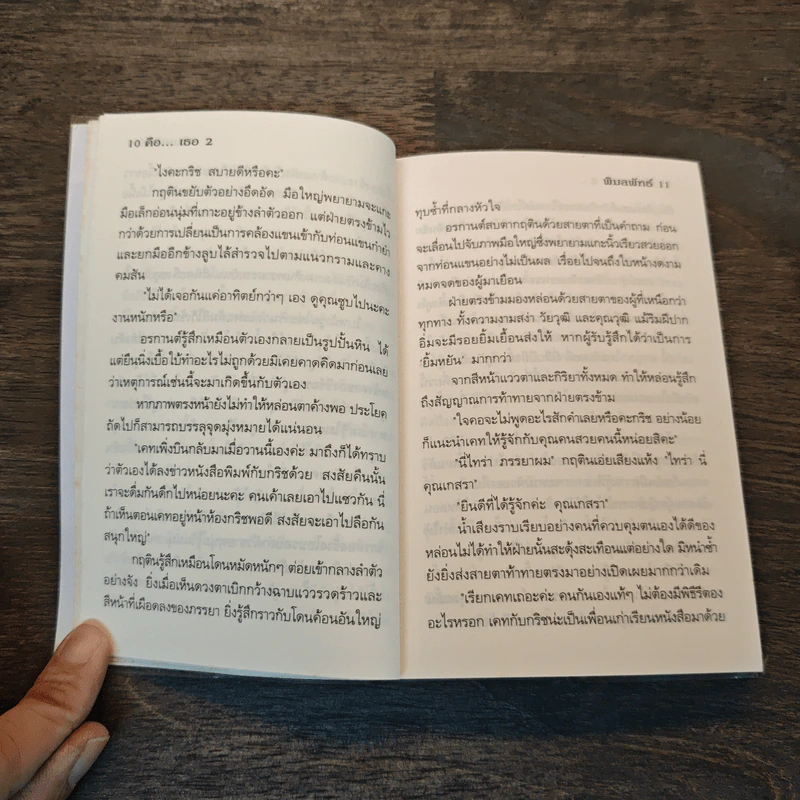 10 คือ... เธอ 2
"ไงคะกริช สบายดีหรือคะ"
กฤตินขยับตัวอย่างอึดอัด มือใหญ่พยายามจะแกะ
มือเล็กอ่อนนุ่มที่เกาะอยู่ข้างลำตัวออก แต่ฝ่ายตรงข้ามไว
กว่าด้วยการเปลี่ยนเป็นการคล้องแขนเข้ากับท่อนแขนกำยำ
และยกมืออีกข้างลูบไล้สำรวจไปตามแนวกรามและคาง
คมสัน
"ไม่ได้เจอกันแค่อาทิตย์กว่าๆ เอง ดูคุณซูบไปนะคะ
งานหนักหรือ"
อรกานต์รู้สึกเหมือนตัวเองกลายเป็นรูปปั้นหิน ได้
แต่ยืนนิ่งเบื้อใบ้ทำอะไรไม่ถูกด้วยมิเคยคาดคิดมาก่อนเลย
ว่าเหตุการณ์เช่นนี้จะมาเกิดขึ้นกับตัวเอง
หากภาพตรงหน้ายังไม่ทำให้หล่อนตาค้างพอ ประโยค
ถัดไปก็สามารถบรรลุจุดมุ่งหมายได้แน่นอน
"เคทเพิ่งบินกลับมาเมื่อวานนี้เองค่ะ มาถึงก็ได้ทราบ
ว่าตัวเองได้ลงข่าวหนังสือพิมพ์กับกริชด้วย สงสัยคืนนั้น
เราจะดื่มกันดึกไปหน่อยนะคะ คนเค้าเลยเอาไปแซวกัน นี่
ถ้าเห็นตอนเคทอยู่หน้าห้องกริชพอดี สงสัยจะเอาไปลือกัน
สนุกใหญ่"
กฤตินรู้สึกเหมือนโดนหมัดหนักๆ ต่อยเข้ากลางลำตัว
อย่างจัง ยิ่งเมื่อเห็นดวงตาเบิกกว้างฉาบแววรวดร้าวและ
สีหน้าที่เผือดลงของภรรยา ยิ่งรู้สึกราวกับโดนค้อนอันใหญ่
พิมลพัทธ์ 11
ทุบซ้ำที่กลางหัวใจ
อรกานต์สบตากฤตินด้วยสายตาที่เป็นคำถาม ก่อน
จะเลื่อนไปจับภาพมือใหญ่ซึ่งพยายามแกะนิ้วเรียวสวยออก
จากท่อนแขนอย่างไม่เป็นผล เรื่อยไปจนถึงใบหน้างดงาม
หมดจดของผู้มาเยือน
ฝ่ายตรงข้ามมองหล่อนด้วยสายตาของผู้ที่เหนือกว่า
ทุกทาง ทั้งความงามสง่า วัยวุฒิ และคุณวุฒิ แม้ริมฝีปาก
อิ่มจะมีรอยยิ้มเยื้อนส่งให้ หากผู้รับรู้สึกได้ว่าเป็นการ
'ยิ้มหยัน' มากกว่า
จากสีหน้าแววตาและกิริยาทั้งหมด ทำให้หล่อนรู้สึก
ถึงสัญญาณการท้าทายจากฝ่ายตรงข้าม
"ใจคอจะไม่พูดอะไรสักคำเลยหรือคะกริช อย่างน้อย
ก็แนะนำเคทให้รู้จักกับคุณคนสวยคนนี้หน่อยสิคะ"
"นี่ไทร่า ภรรยาผม" กฤตินเอ่ยเสียงแห้ง "ไทร่า นี่
คุณเกสรา"
"ยินดีที่ได้รู้จักค่ะ คุณเกสรา"
น้ำเสียงราบเรียบอย่างคนที่ควบคุมตนเองได้ดีของ
หล่อนไม่ได้ทำให้ฝ่ายนั้นสะดุ้งสะเทือนแต่อย่างใด มิหนำซ้ำ
ยังยิ่งส่งสายตาท้าทายตรงมาอย่างเปิดเผยมากกว่าเดิม
"เรียกเคทเถอะค่ะ คนกันเองแท้ๆ ไม่ต้องมีพิธีรีตอง
อะไรหรอก เคทกับกริชน่ะเป็นเพื่อนเก่าเรียนหนังสือมาด้วย